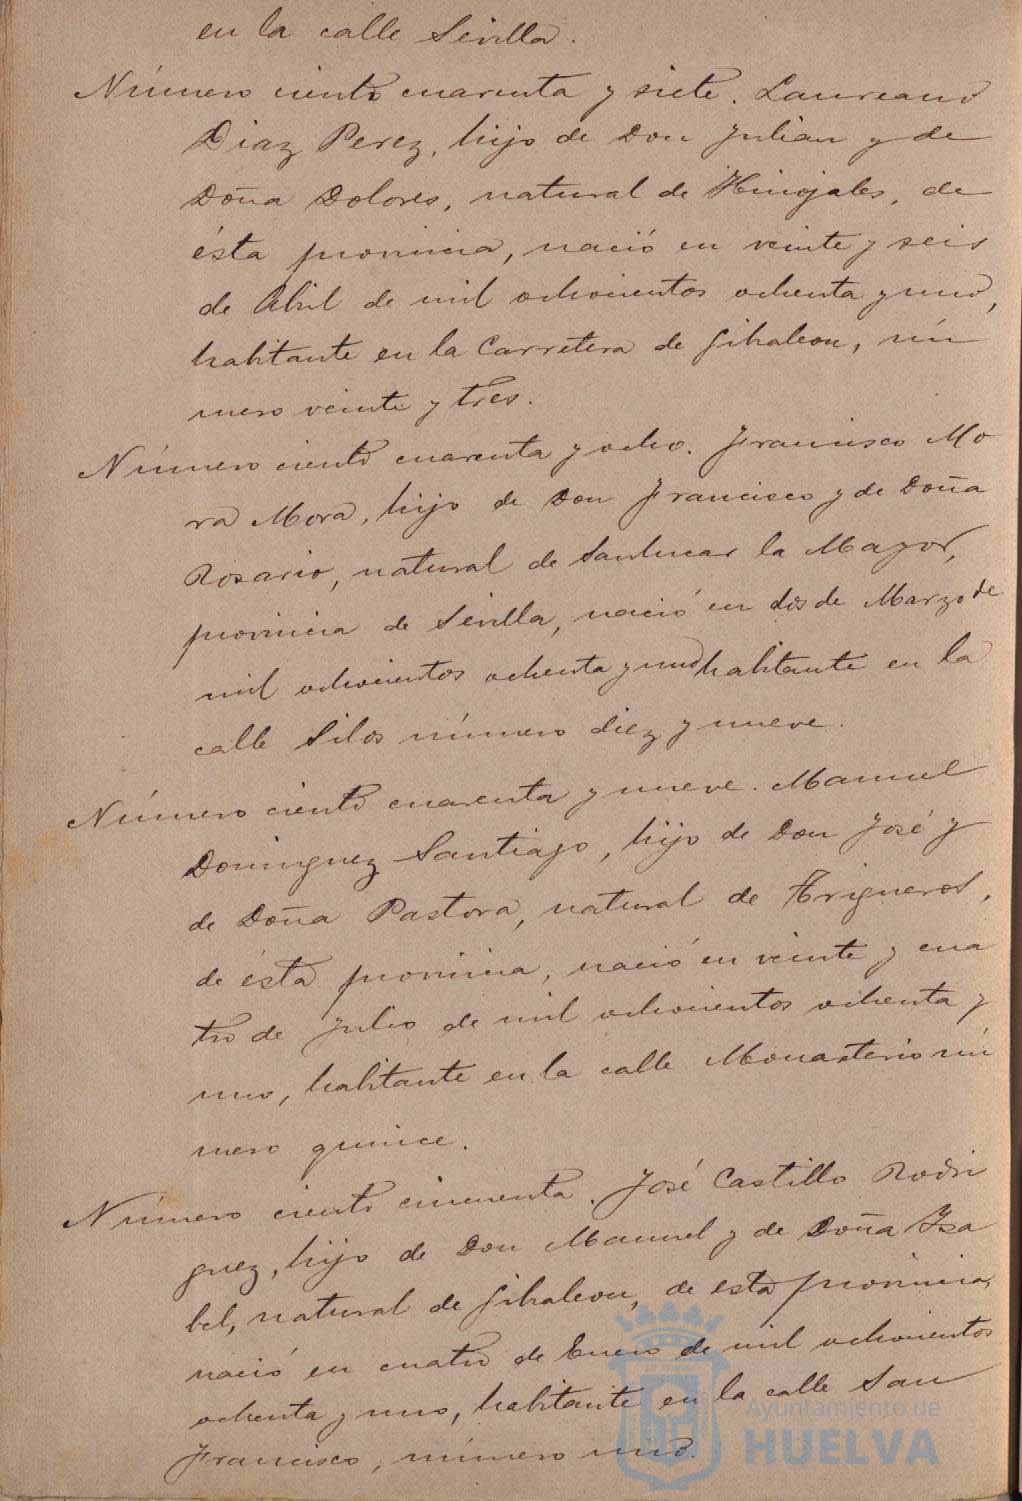 en la calle Sevilla.
Número ciento cuarenta y siete. Laureano
Diaz Perez, hijo de Don Julian y de
Doña Dolores, natural de Hinojales, de
ésta provincia, nació en veinte y seis
de Abril de mil ochocientos ochenta y uno,
habitante en la Carretera de Gibraleon, nú
mero veinte y tres.
Número ciento cuarenta y ocho. Francisco Mo
ra Mora, hijo de Don Francisco y de Doña
Rosario, natural de Sanlucar la Mayor,
provincia de Sevilla, nació en dos de Marzo de
mil ochocientos ochenta y uno habitante en la
calle Silos número diez y nueve.
Número ciento cuarenta y nueve. Manuel
Dominguez Santiago, hijo de Don José y
de Doña Pastora, natural de Trigueros,
de ésta provincia, nació en veinte y cua
tro de Julio de mil ochocientos ochenta y
uno, habitante en la calle Monasterio nú
mero quince.
Número ciento cincuenta. José Castillo Rodri
guez, hijo de Don Manuel y de Doña Isa
bel, natural de Gibraleon, de esta provincia,
nació en cuatro de Enero de mil ochocientos
ochenta y uno, habitante en la calle San
Francisco, número uno.
Ayuntamiento de
HUELVA